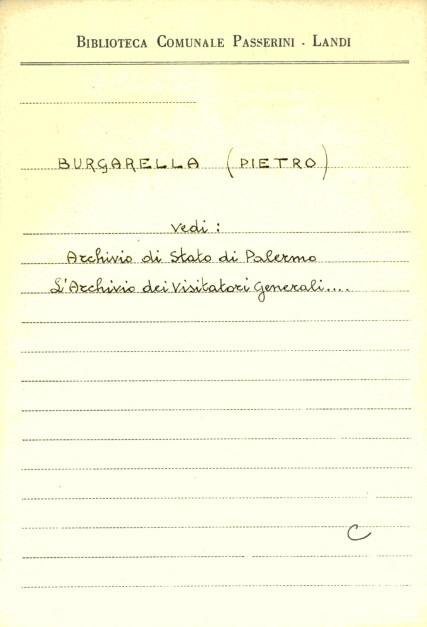 BIBLIOTECA COMUNALE PASSERINI - LANDI
BURGARELLA (PIETRO)
vedi :
Archivio di Stato di Palermo
L'Archivio dei Visitatori Generali....
C